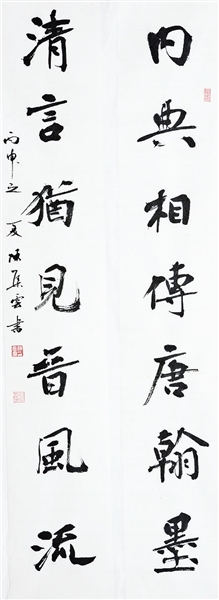 内典相傳唐翰墨
清言猶見晉風流
丙申之夏陈集雲書